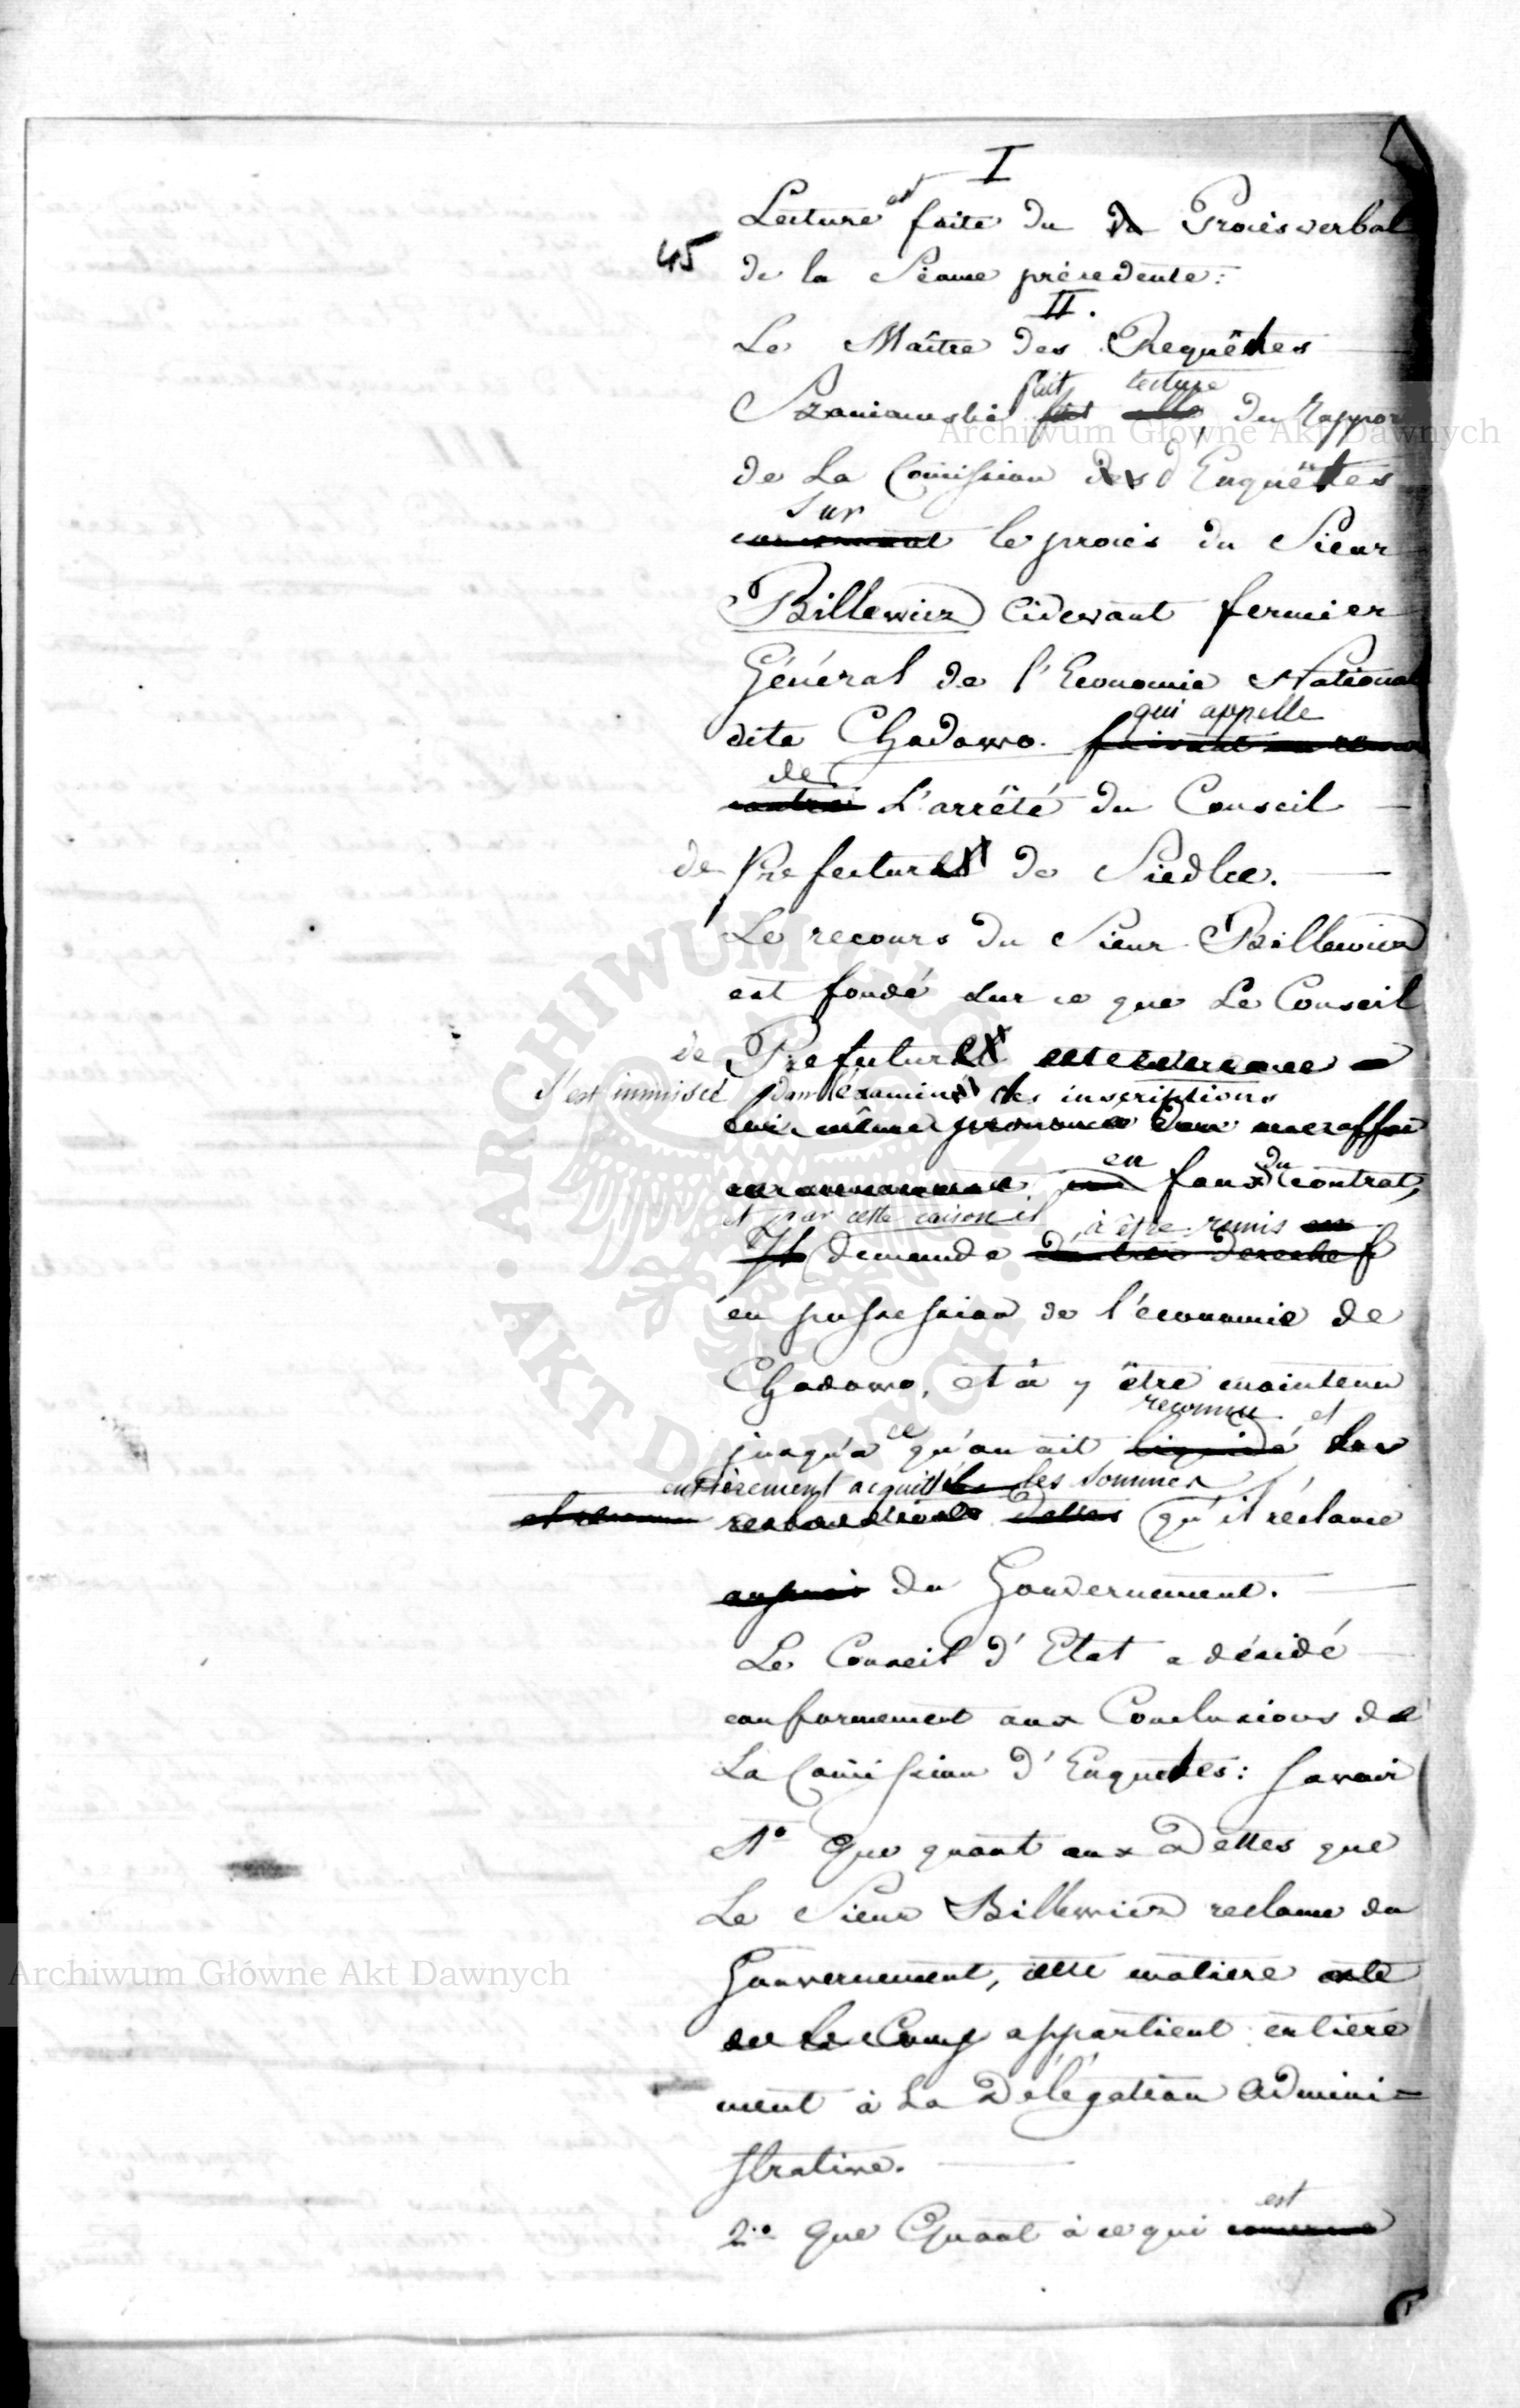 I
Lecture est faite du du Procès verbal
45 de la Séance précedente:
II.
Le Maître des Requêtes
fait lecture
Szaniawski fait du Rappor
de La Comission des d'Enquêtes
sur
concernant le procès du Sieur
Billewicz Cidevant fermier
Général de l'Economie National
qui appelle
dite Chadowo. faisant un recours
de
contre L'arrêté du Conseil
de Prefecture de Siedlce.
Le recours du Sieur Billewicz
est fondé sur ce que Le Conseil
de Prefecture
s'est immiscé dans l'examiné des inscriptions
lui même prononcé dans une affai
en faux du contrat,
et par cette raison il à être remis en
Il demande d'entrer derechef
en possession de l'économie de
Chadowo, et à y être maintenu
reconnu et
jusqu'à ce qu'on ait liquidé les
entièrement acquitté les sommes
dettes qu'il réclame
du Gouvernement.
Le Conseil d'Etat a décidé
conformement aux Conclusions de
La Comission d'Enquetes: savoir
1º Que quant aux Dettes que
Le Sieur Billewicz reclame du
Gouvernement, cette matiere
de la Comp appartient entiere
ment à La Délégation Admini=
strative.
est
2º Que Quant à ce qui concerne
Archiwum Główne Akt Dawnych
Archiwum Główne Akt Dawnych
ARCHIWUM GŁÓWNE · AKT DAWNYCH ·